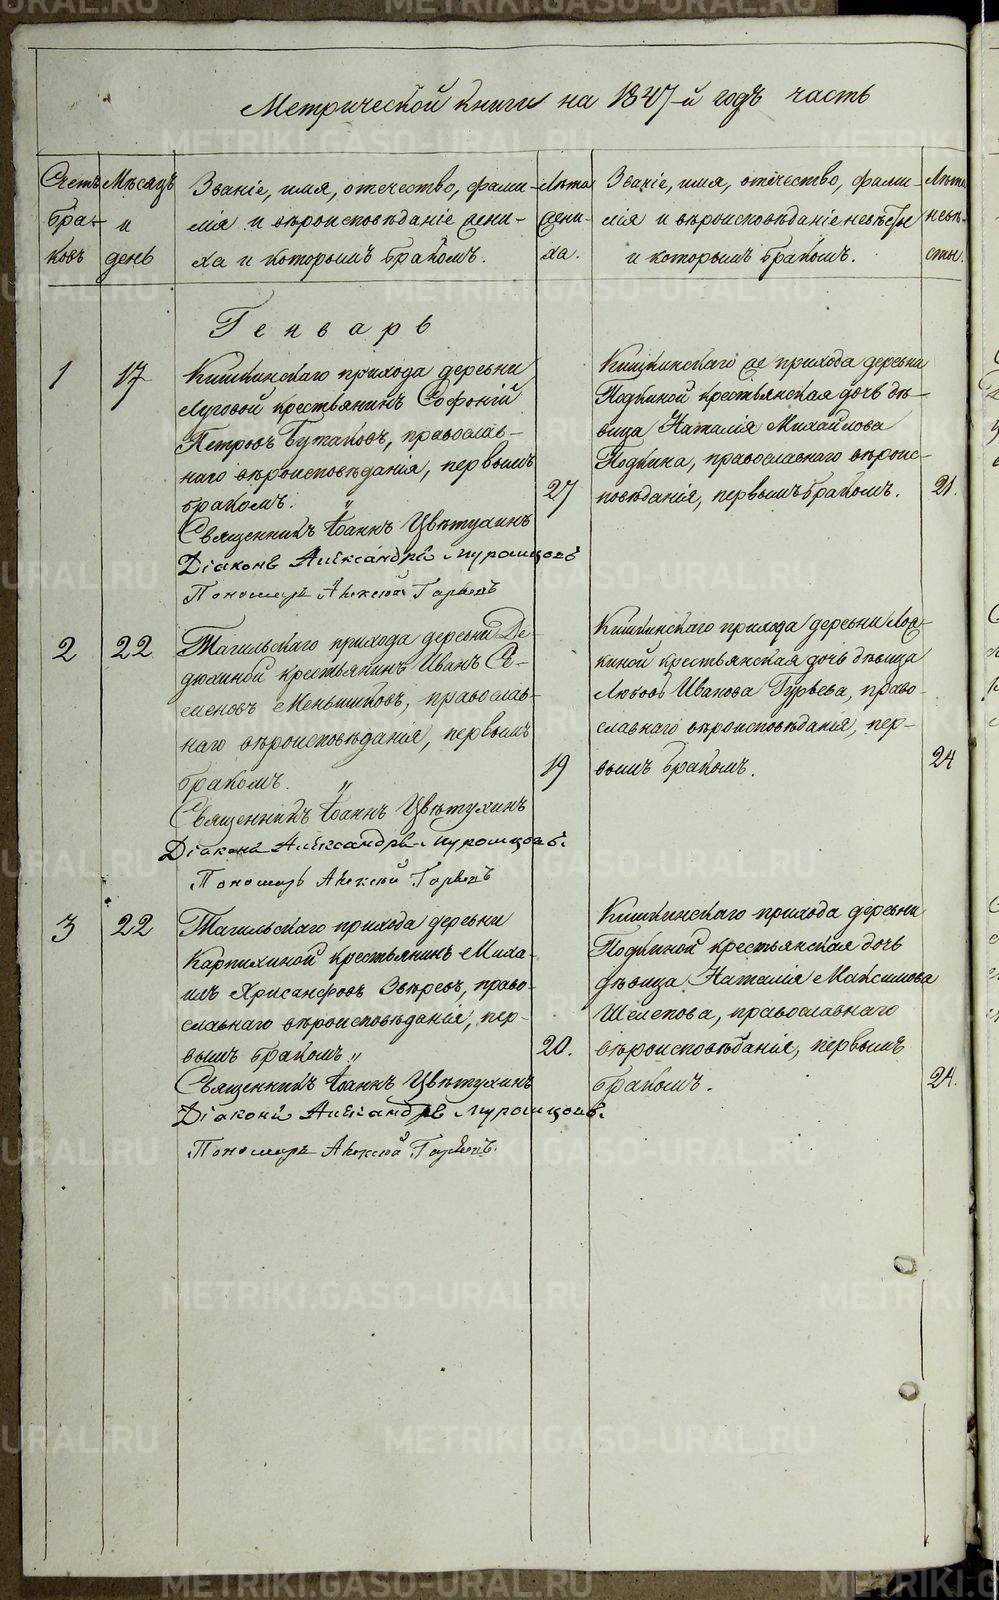 Метрической книги на 1847-й годъ часть
Счетъ браковъ
Мѣсяцъ и день
Званіе, имя, отечество, фамилія и вѣроисповѣданіе жениха и которымъ бракомъ.
Лѣта жениха.
Званіе, имя, отечество, фамилія и вѣроисповѣданіе невѣсты и которымъ бракомъ.
Лѣта невѣсты.
Генварь
1
17
Кишкинскаго прихода деревни
Луговой крестьянинъ Софоній
Петровъ Бужаковъ, православ-
наго вѣроисповѣданія, первымъ
бракомъ. "
27
Священникъ Іоаннъ Цвѣтухинъ
Діаконъ Александръ Муромцовъ
Пономарь Алексѣй
Кишкинскаго же прихода деревни
Подкиной крестьянская дочь дѣ-
вица Наталія Михайлова
Подкина, православнаго вѣроис-
повѣданія, первымъ бракомъ.
21.
2
22
Тагильскаго прихода деревни Де-
дюхиной крестьянинъ Иванъ Се-
меновъ Меньшиковъ, православ-
наго вѣроисповѣданія, первымъ
бракомъ. "
19
Священникъ Іоаннъ Цвѣтухинъ
Діаконъ Александръ Муромцовъ.
Пономарь Алексѣй
Кишкинскаго прихода деревни
киной крестьянская дочь дѣвица
Любовь Иванова Гурьева, право-
славнаго вѣроисповѣданія, пер-
вымъ бракомъ.
24
3
22
Тагильскаго прихода деревни
Карпихиной крестьянинъ Миха-
илъ Хрисанфовъ Звѣревъ, право-
славнаго вѣроисповѣданія, пер-
вымъ бракомъ "
20.
Священникъ Іоаннъ Цвѣтухинъ
Діаконъ Александръ Муромцовъ.
Пономарь Алексѣй
Кишкинскаго прихода деревни
Подкиной крестьянская дочь
дѣвица Наталія Максимова
Шелепова, православнаго
вѣроисповѣданія, первымъ
бракомъ.
24.
METRIKI.GASO-URAL.RU